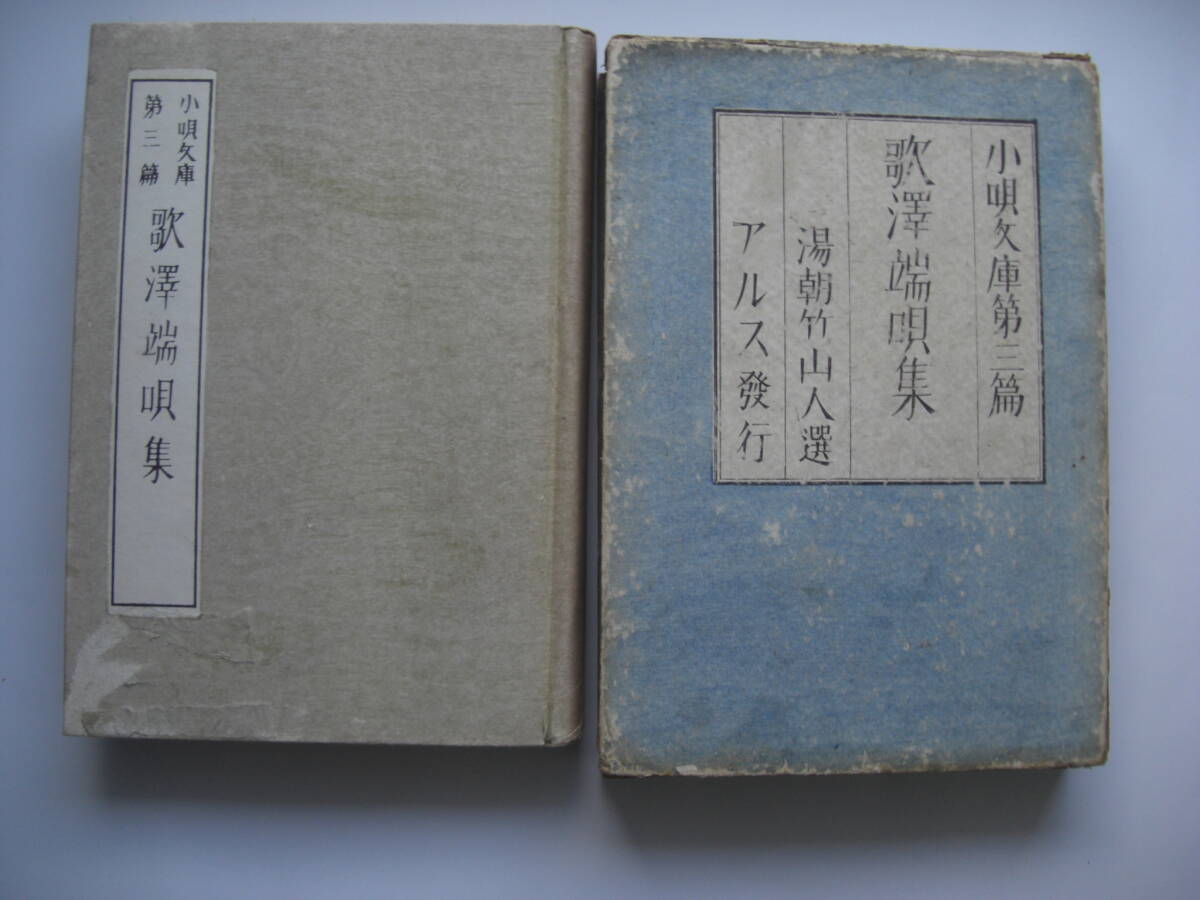 小唄文庫
第三篇
歌澤端唄集
小唄文庫第三篇
歌澤端唄集
湯朝竹山人選
アルス發行